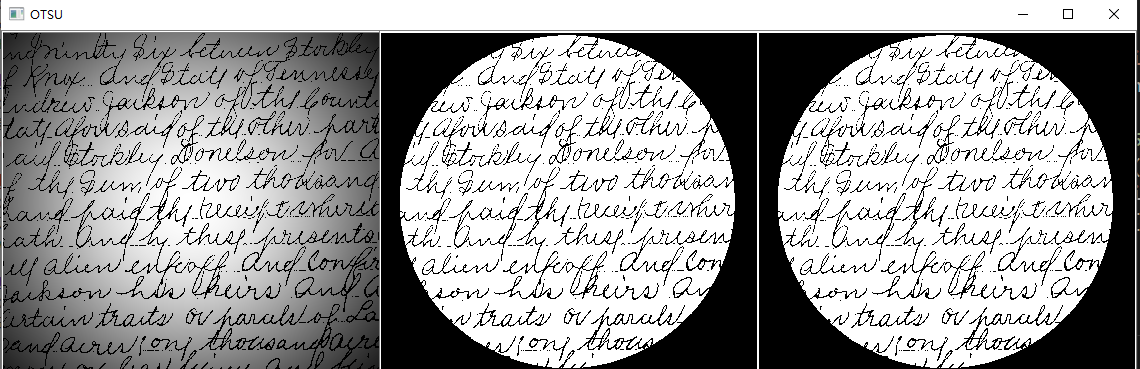 OTSU
nd Ninity Six between Stockley
f Knox and State of Tennessey
Andrew Jackson of the Count
tate aforesaid of the other part
aid Stockley Donelson for a
f the Sum of two thousand
hand paid the receipt whereof
ath and by these presents
ell alien enfeoff and Confir
Jackson his heirs and a
ertain traits or parcels of La
sand acres one thousand acre
tween Stock
and State of Ten
rew Jackson of the C
y aforesaid of the other p
aid Stockley Donelson for
the Sum of two thousan
and paid the receipt wher
th and by these presen
alien enfeoff and Con
son his heirs an
in traits or parcels
one thous
tween Stock
and State of Ten
rew Jackson of the C
y aforesaid of the other p
aid Stockley Donelson for
the Sum of two thousan
and paid the receipt wher
th and by these presen
alien enfeoff and Con
son his heirs an
in traits or parcels
one thous